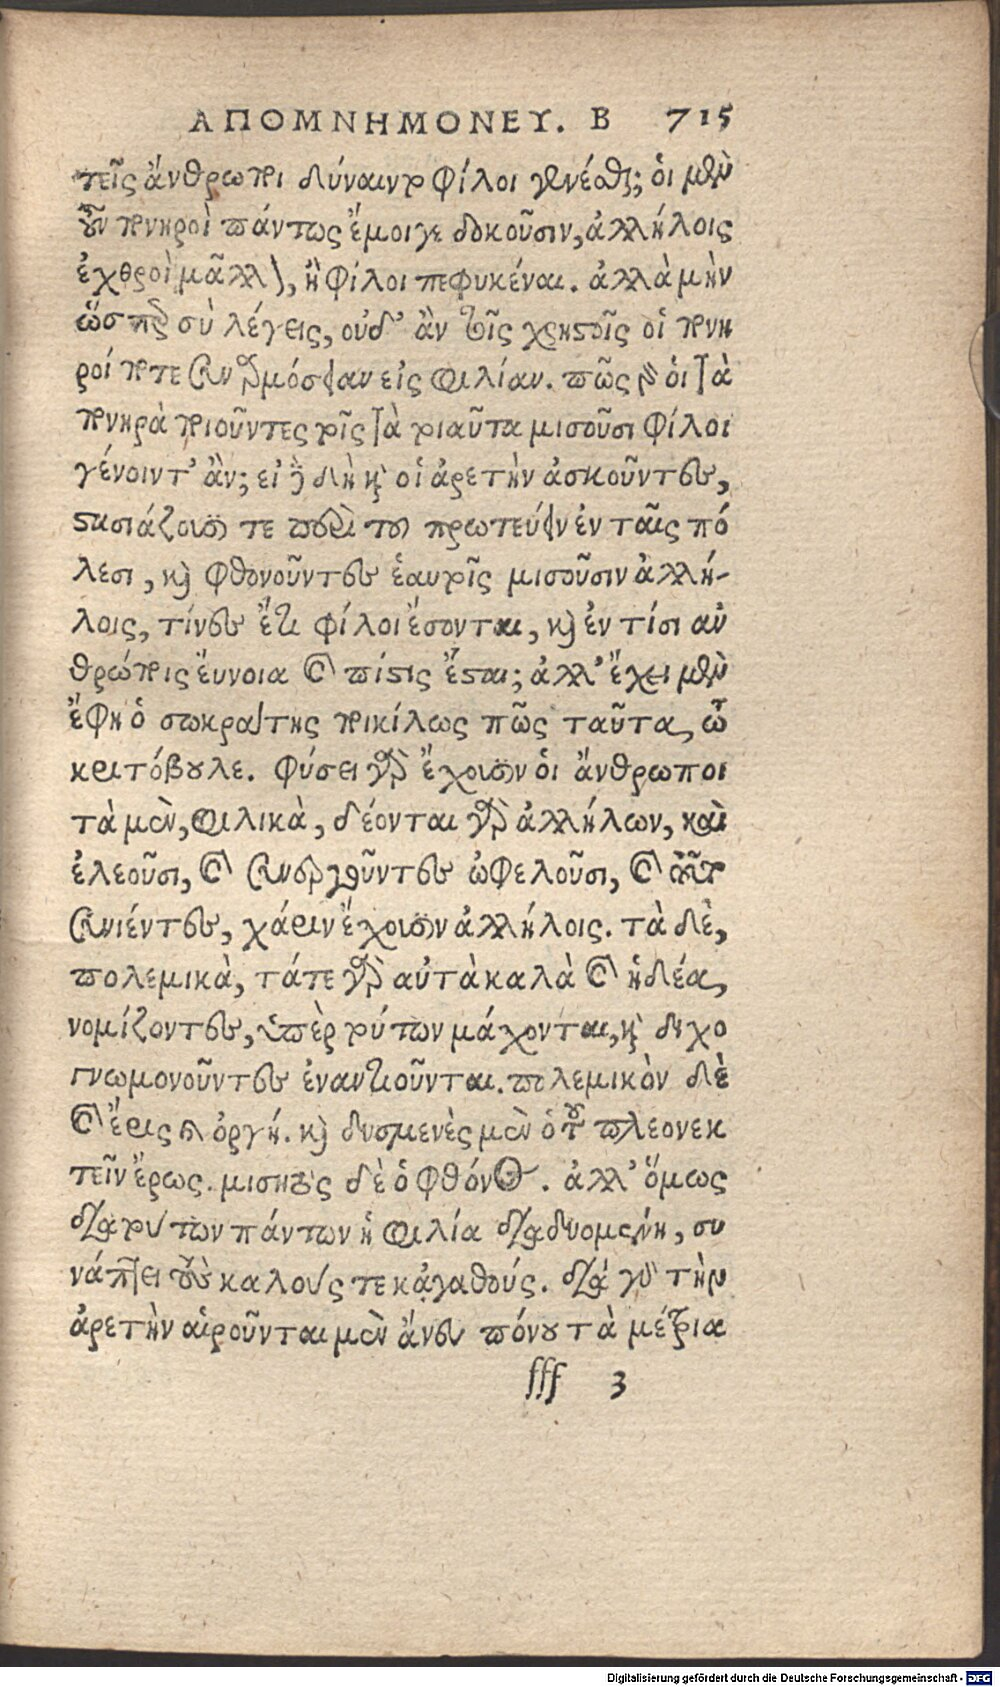 ΑΠΟΜΝΗΜΟΝΕΥ. Β 715
τεῖς ἄνθρωποι δύναιντο φίλοι γενέσθαι; οἱ μὲν
οὖν πονηροὶ πάντως ἔμοιγε δοκοῦσιν, ἀλλήλοις
ἐχθροὶ μᾶλλον, ἢ φίλοι πεφυκέναι. ἀλλὰ μὴν
ὥσπερ σὺ λέγεις, οὐδ’ ἂν τοῖς χρηστοῖς οἱ πονη
ροί ποτε συναρμόσειαν εἰς φιλίαν. πῶς γὰρ οἱ τὰ
πονηρὰ ποιοῦντες τοῖς τὰ τοιαῦτα μισοῦσι φίλοι
γένοιντ’ ἄν; εἰ δὲ δὴ καὶ οἱ ἀρετὴν ἀσκοῦντες,
στασιάζουσί τε περὶ τοῦ πρωτεύειν ἐν ταῖς πό
λεσι, καὶ φθονοῦντες ἑαυτοῖς μισοῦσιν ἀλλή-
λοις, τίνες ἔτι φίλοι ἔσονται, καὶ ἐν τίσι αν
θρώποις εὔνοια καὶ πίστις ἔσται; ἀλλ’ ἔχει μὲν
ἔφη ὁ σωκράτης ποικίλως πῶς ταῦτα, ὦ
κριτόβουλε. φύσει γὰρ ἔχουσιν οἱ ἄνθρωποι
τὰ μὲν, φιλικὰ, δέονται γὰρ ἀλλήλων, καὶ
ἐλεοῦσι, καὶ συνεργοῦντες ὠφελοῦσι, καὶ τοῦτο
συνιέντες, χάριν ἔχουσιν ἀλλήλοις. τὰ δὲ,
πολεμικὰ, τά τε γὰρ αὐτὰ καλὰ καὶ ἡδέα,
νομίζοντες, ὑπὲρ τούτων μάχονται, καὶ διχο
γνωμονοῦντες ἐναντιοῦνται. πολεμικὸν δὲ
καὶ ἔρις καὶ ὀργή. καὶ δυσμενὲς μὲν ὁ τοῦ πλεονεκ
τεῖν ἔρως. μισητὸς δὲ ὁ φθόνος. ἀλλ’ ὅμως
διὰ τούτων πάντων ἡ φιλία διαδυομένη, συ
νάπτει τοὺς καλούς τε κἀγαθούς. διὰ γὰρ τὴν
ἀρετὴν αἱροῦνται μὲν ἄνευ πόνου τὰ μέτρια
ſſſ 3
Digitalisierung gefördert durch die Deutsche Forschungsgemeinschaft - DFG